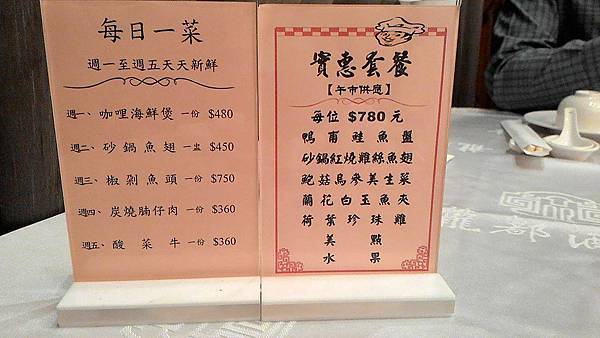 每日一菜
週一至週五天天新鮮
週一、咖哩海鮮煲 一份 $480
週二、砂鍋魚翅 一盅 $450
週三、椒剁魚頭 一份 $750
週四、炭燒腩仔肉 一份 $360
週五、酸菜牛 一份 $360
實惠套餐
【午市供應】
每位 $780 元
鴨甫鮭魚盤
砂鍋紅燒雞絲魚翅
鮑菇烏參美生菜
蘭花白玉魚夾
荷葉珍珠雞
美點
水果